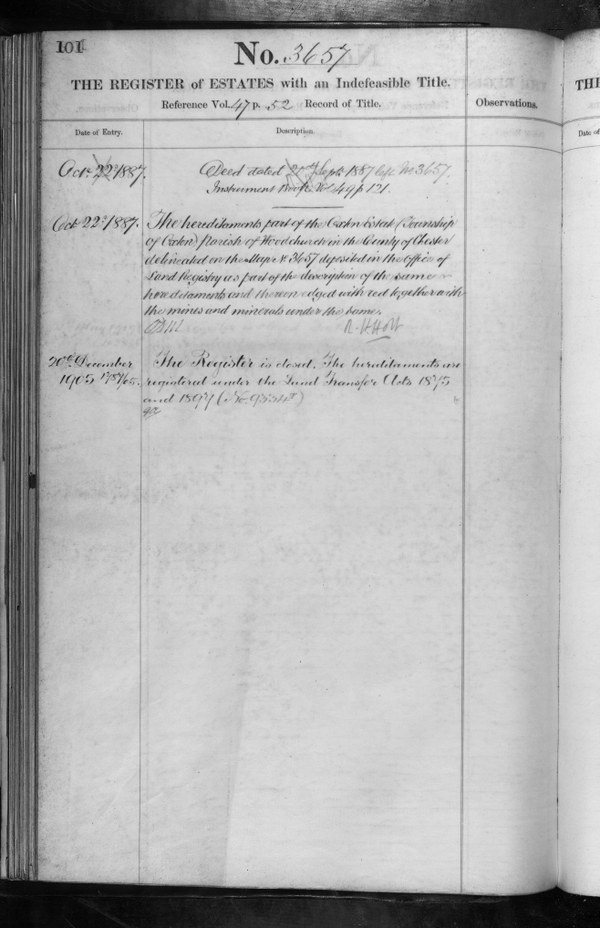 101
No. 3657
THE REGISTER of ESTATES with an Indefeasible Title.
Reference Vol. 47 p. 52 Record of Title.
Observations.
Date of Entry.
Description
Octr 22d 1887.
Deed dated Septr 1887 No 3657.
Instrument Book Vol 49 p 121.
Oct 22d 1887.
The hereditaments part of the Oxton Estate (Township
of Oxton) Parish of Woodchurch in the County of Chester
delineated on the Map No 3657 deposited in the Office of
Land Registry as part of the description of the same
hereditaments and thereon edged with red together with
the mines and minerals under the same.
R H Holt
20th December
1905
The Register is closed. The hereditaments are
registered under the Land Transfer Acts 1875
and 1897
THE
Date of